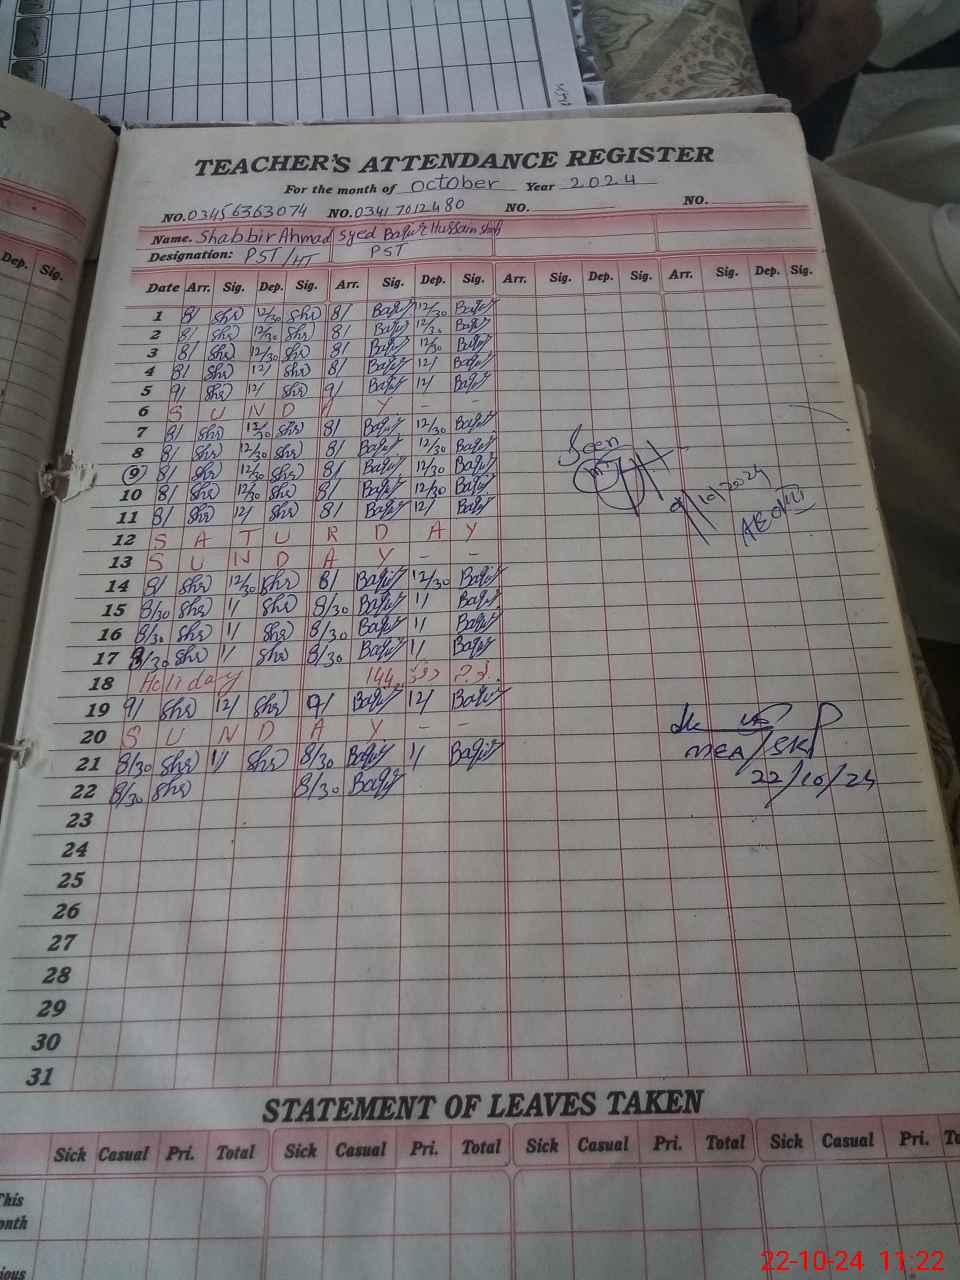 TEACHER'S ATTENDANCE REGISTER
For the month of October Year 2024
NO. 03456363074 NO. 03417012480 NO. NO.
Name. Shabbir Ahmad Syed Baqir Hussain Shah
Designation: PST/HT PST
Dep. Sig.
Date Arr. Sig. Dep. Sig. Arr. Sig. Dep. Sig. Arr. Sig. Dep. Sig. Arr. Sig. Dep. Sig.
1 8/ Shr 12/30 Shr 8/ Baqir 12/30 Baqir
2 8/ Shr 12/30 Shr 8/ Baqir 12/30 Baqir
3 8/ Shr 12/30 Shr 8/ Baqir 12/30 Baqir
4 8/ Shr 12/ Shr 8/ Baqir 12/ Baqir
5 9/ Shr 12/ Shr 9/ Baqir 12/ Baqir
6 S U N D A Y - -
7 8/ Shr 12/30 Shr 8/ Baqir 12/30 Baqir
8 8/ Shr 12/30 Shr 8/ Baqir 12/30 Baqir
Seen
9 8/ Shr 12/30 Shr 8/ Baqir 12/30 Baqir
10 8/ Shr 12/30 Shr 8/ Baqir 12/30 Baqir
9/10/2024
11 8/ Shr 12/ Shr 8/ Baqir 12/ Baqir
12 S A T U R D A Y
13 S U N D A Y - -
14 8/ Shr 12/30 Shr 8/ Baqir 12/30 Baqir
15 8/30 Shr 1/ Shr 8/30 Baqir 1/ Baqir
16 8/30 Shr 1/ Shr 8/30 Baqir 1/ Baqir
17 8/30 Shr 1/ Shr 8/30 Baqir 1/ Baqir
18 Holiday 144
19 9/ Shr 12/ Shr 9/ Baqir 12/ Baqir
20 S U N D A Y - -
21 8/30 Shr 1/ Shr 8/30 Baqir 1/ Baqir
MEA/SKP
22 8/30 Shr 8/30 Baqir
22/10/24
23
24
25
26
27
28
29
30
31
STATEMENT OF LEAVES TAKEN
Sick Casual Pri. Total Sick Casual Pri. Total Sick Casual Pri. Total Sick Casual Pri.
This
22-10-24 11:22